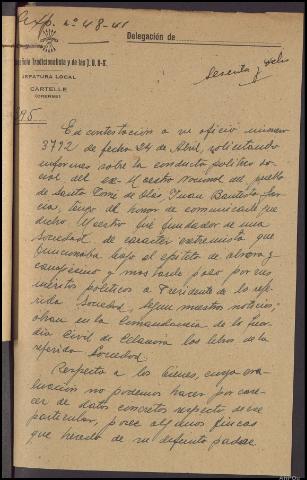 Exp. nº 48-41
Delegación de
Española Tradicionalista y de las J. O. N-S.
Sesenta y seis
JEFATURA LOCAL
CARTELLE
(ORENSE)
En contestación a su oficio número
3712 de fecha 24 de Abril, solicitando
informes sobre la conducta politico so-
cial del ex-Maestro Nacional del pueblo
de Santo Tomé de Juan Bautista
tengo el honor de comunicarle que
dicho Maestro fué fundador de una
Sociedad de caracter extremista que
funcionaba bajo el epiteto de obrera y
campesina y mas tarde paso por sus
méritos politicos a Presidente de la refe-
rida Sociedad, segun nuestras noticias;
obran en la Comandancia de la Guar-
dia Civil de Celanova los libros de la
referida Sociedad.
Respecto a los bienes, cuya eva-
luación no podemos hacer por care-
cer de datos concretos respecto de ese
particular, posee algunas fincas
que heredo de su difunto padre